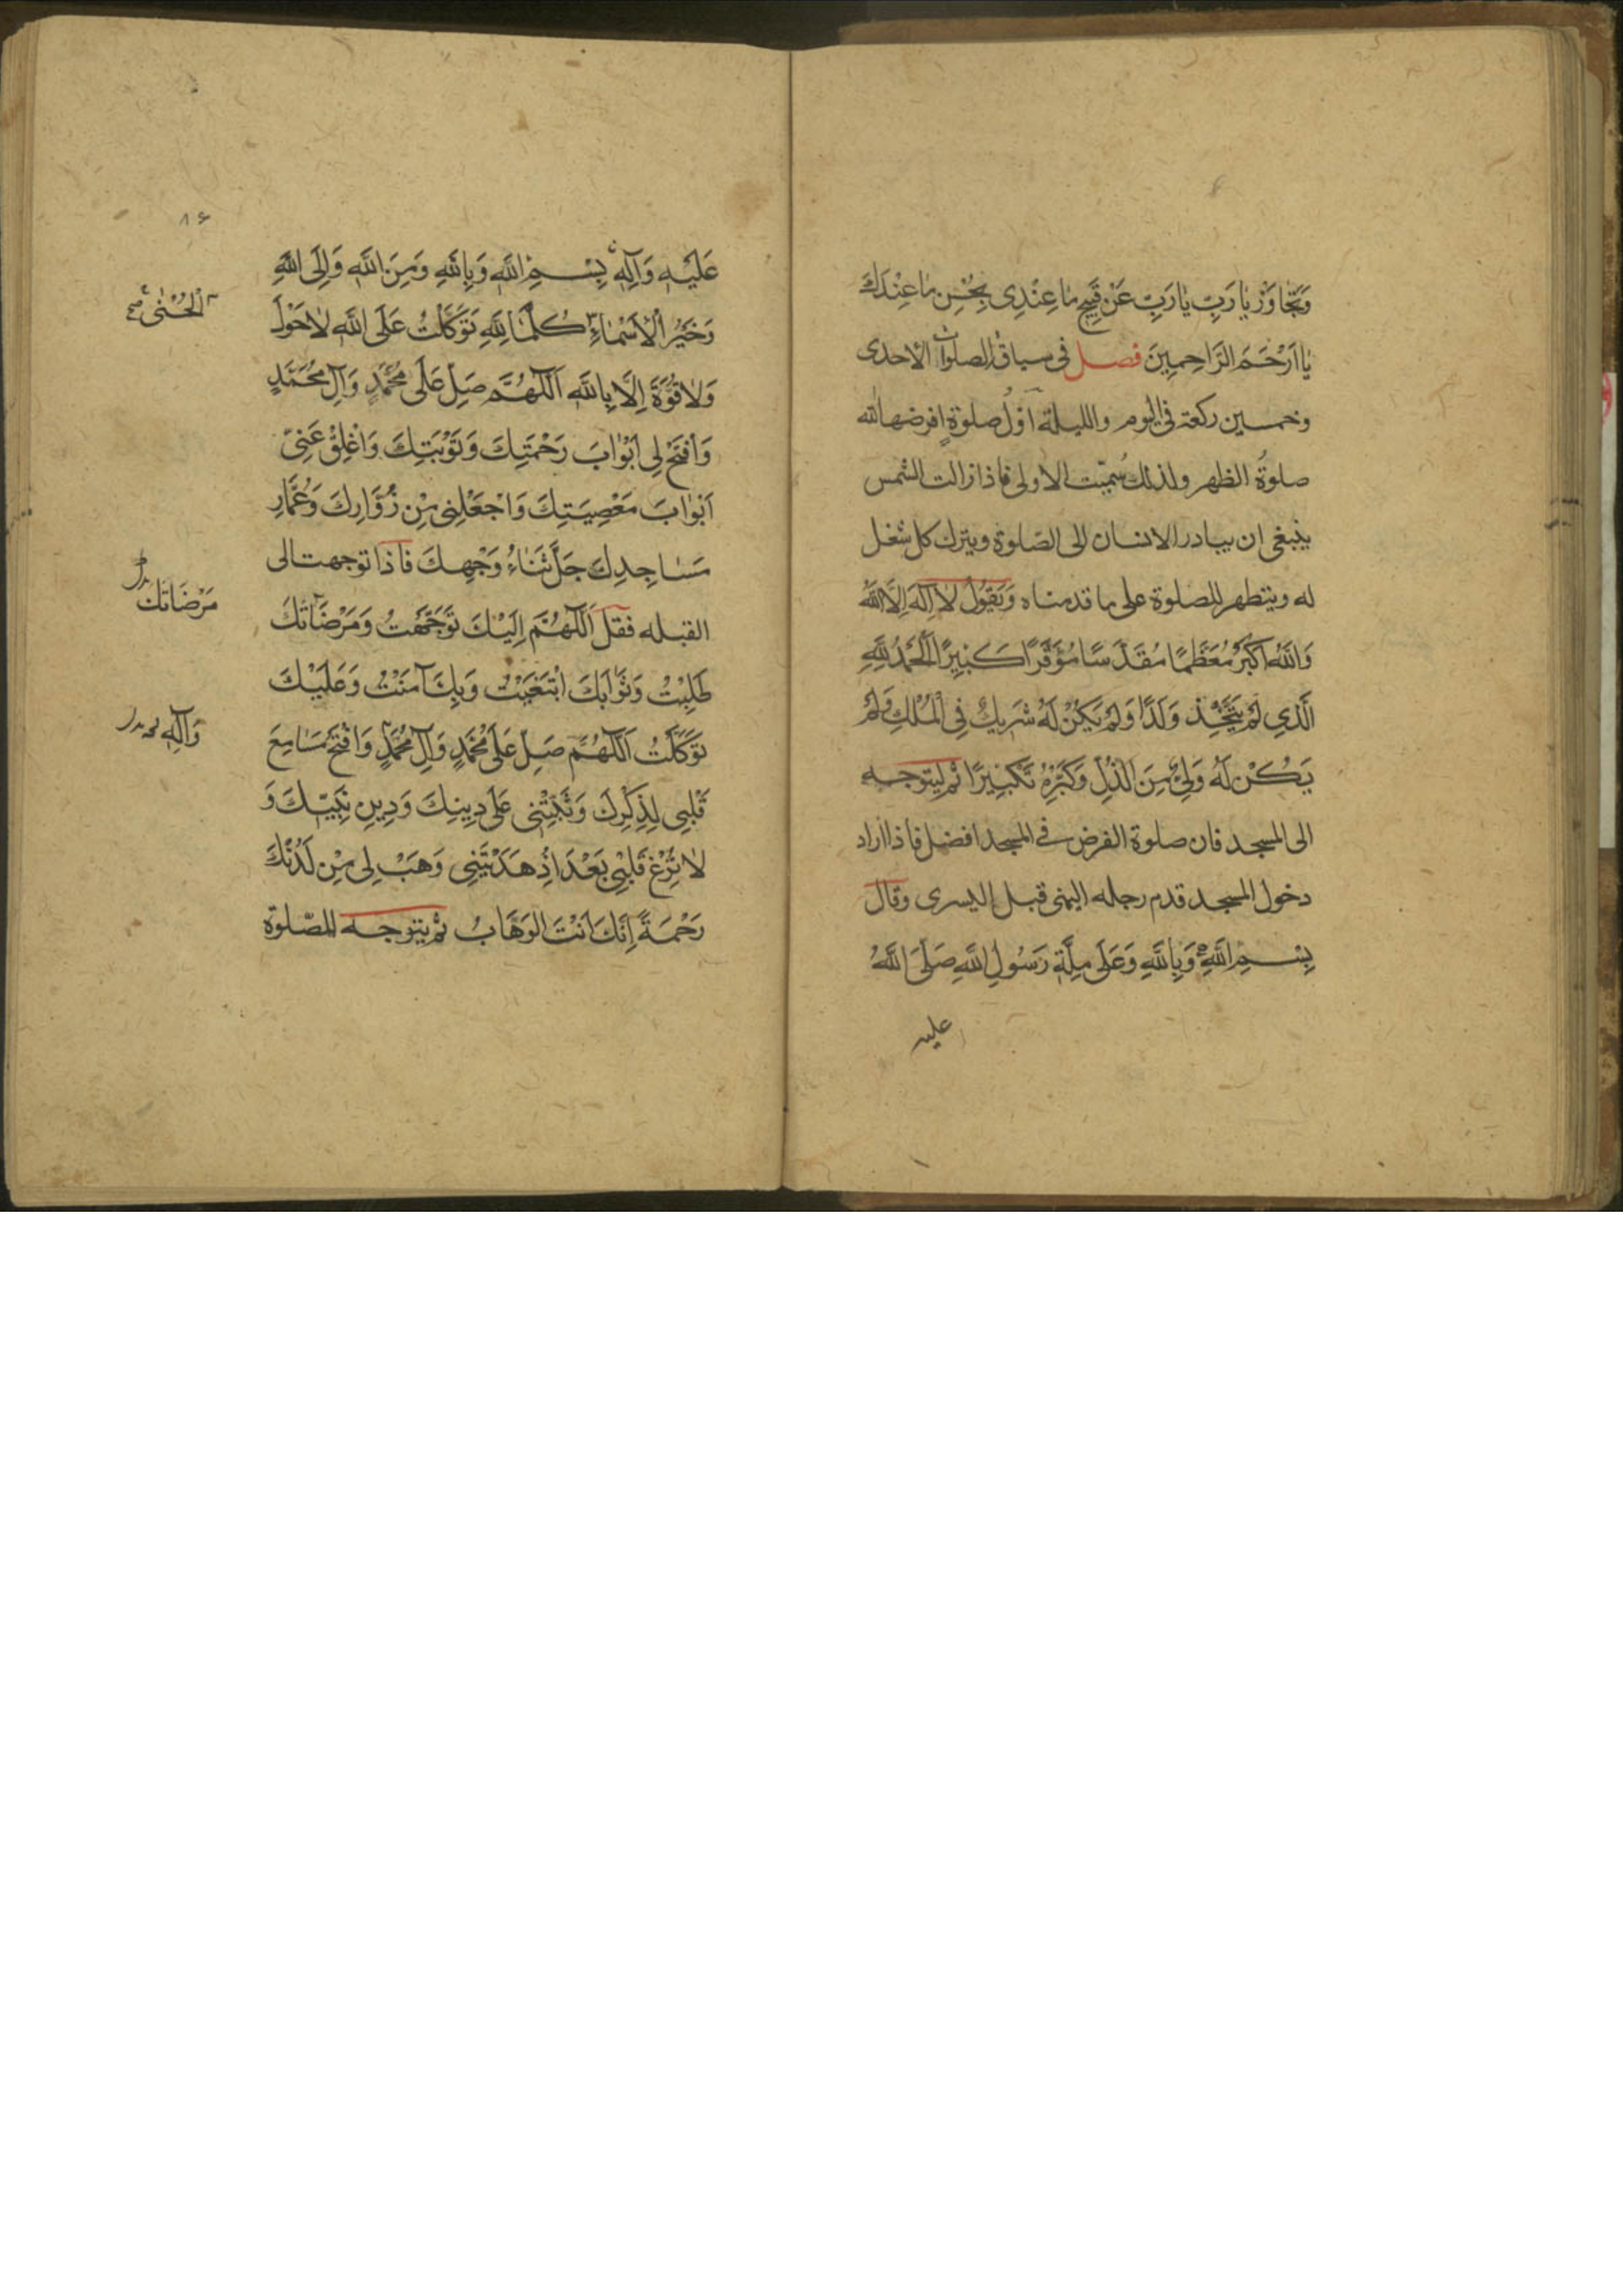 وَتَجَاوَزْ يَا رَبِّ يَا رَبِّ عَنْ قَبِيحِ مَا عِنْدِى بِحُسْنِ مَا عِنْدَكَ
يَا اَرْحَمَ الرَّاحِمِينَ فصل فى سياق الصلوات الاحدى
وخمسين ركعة فى اليوم والليلة اوّلُ صلوة افرضها الله
صلوةُ الظهر ولذلك سُمّيت الاولى فاذا زالت الشمس
ينبغى ان يبادر الانسان الى الصّلوة ويترك كل شغل
له ويتطهر للصلوة على ما قدمناه وَيَقُولُ لَا اِلَهَ اِلَّا اللَّهُ
وَاللَّهُ اَكْبَرُ مُعَظَّمًا مُقَدَّسًا مُوَقَّرًا كَبِيرًا اَلْحَمْدُ لِلَّهِ
الَّذِي لَمْ يَتَّخِذْ وَلَدًا وَلَمْ يَكُنْ لَهُ شَرِيكٌ فِي الْمُلْكِ وَلَمْ
يَكُنْ لَهُ وَلِيٌّ مِنَ الذُّلِّ وَكَبِّرْهُ تَكْبِيرًا ثم ليتوجه
الى المسجد فان صلوة الفرض فى المسجد افضل فاذا اراد
دخول المسجد قدم رجله اليمنى قبل اليسرى وقال
بِسْمِ اللَّهِ وَبِاللَّهِ وَعَلَى مِلَّةِ رَسُولِ اللَّهِ صَلَّى اللَّهُ
عليه
٨٦
عَلَيْهِ وَآلِهِ بِسْمِ اللَّهِ وَبِاللَّهِ وَمِنَ اللَّهِ وَاِلَى اللَّهِ
اَلْحُسْنٰى صح
وَخَيْرُ الْاَسْمَاءِ كُلُّهَا لِلَّهِ تَوَكَّلْتُ عَلَى اللَّهِ لَا حَوْلَ
وَلَا قُوَّةَ اِلَّا بِاللَّهِ اَللّٰهُمَّ صَلِّ عَلَى مُحَمَّدٍ وَآلِ مُحَمَّدٍ
وَافْتَحْ لِى اَبْوَابَ رَحْمَتِكَ وَتَوْبَتِكَ وَاَغْلِقْ عَنِّى
اَبْوَابَ مَعْصِيَتِكَ وَاجْعَلْنِى مِنْ زُوَّارِكَ وَعُمَّارِ
مَسَاجِدِكَ جَلَّ ثَنَاءُ وَجْهِكَ فاذا توجهت الى
مَرْضَاتَكَ
القبله فقل اَللّٰهُمَّ اِلَيْكَ تَوَجَّهْتُ وَمَرْضَاتَكَ
طَلَبْتُ وَثَوَابَكَ ابْتَغَيْتُ وَبِكَ آمَنْتُ وَعَلَيْكَ
وَآلِهِ
تَوَكَّلْتُ اَللّٰهُمَّ صَلِّ عَلَى مُحَمَّدٍ وَآلِ مُحَمَّدٍ وَافْتَحْ مَسَامِعَ
قَلْبِى لِذِكْرِكَ وَثَبِّتْنِى عَلَى دِينِكَ وَدِينِ نَبِيِّكَ وَ
لَا تُزِغْ قَلْبِى بَعْدَ اِذْ هَدَيْتَنِى وَهَبْ لِى مِنْ لَدُنْكَ
رَحْمَةً اِنَّكَ اَنْتَ الوَهَّابُ ثم يتوجه للصّلوة